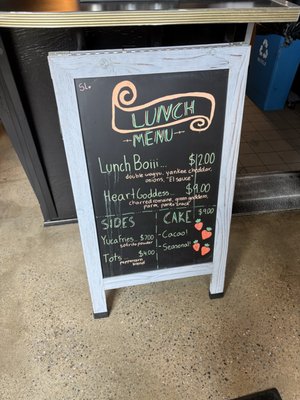 LUNCH
MENU
Lunch Boiii... $12.00
double wagyu, yankee cheddar,
onions, "El sauce"
Heart Goddess $9.00
charred romaine, green goddess,
parm, panko
SIDES
Yuca Fries $7.00
sofrito powder
Tots $4.00
CAKE $9.00
-Cacao!
-Seasonal!